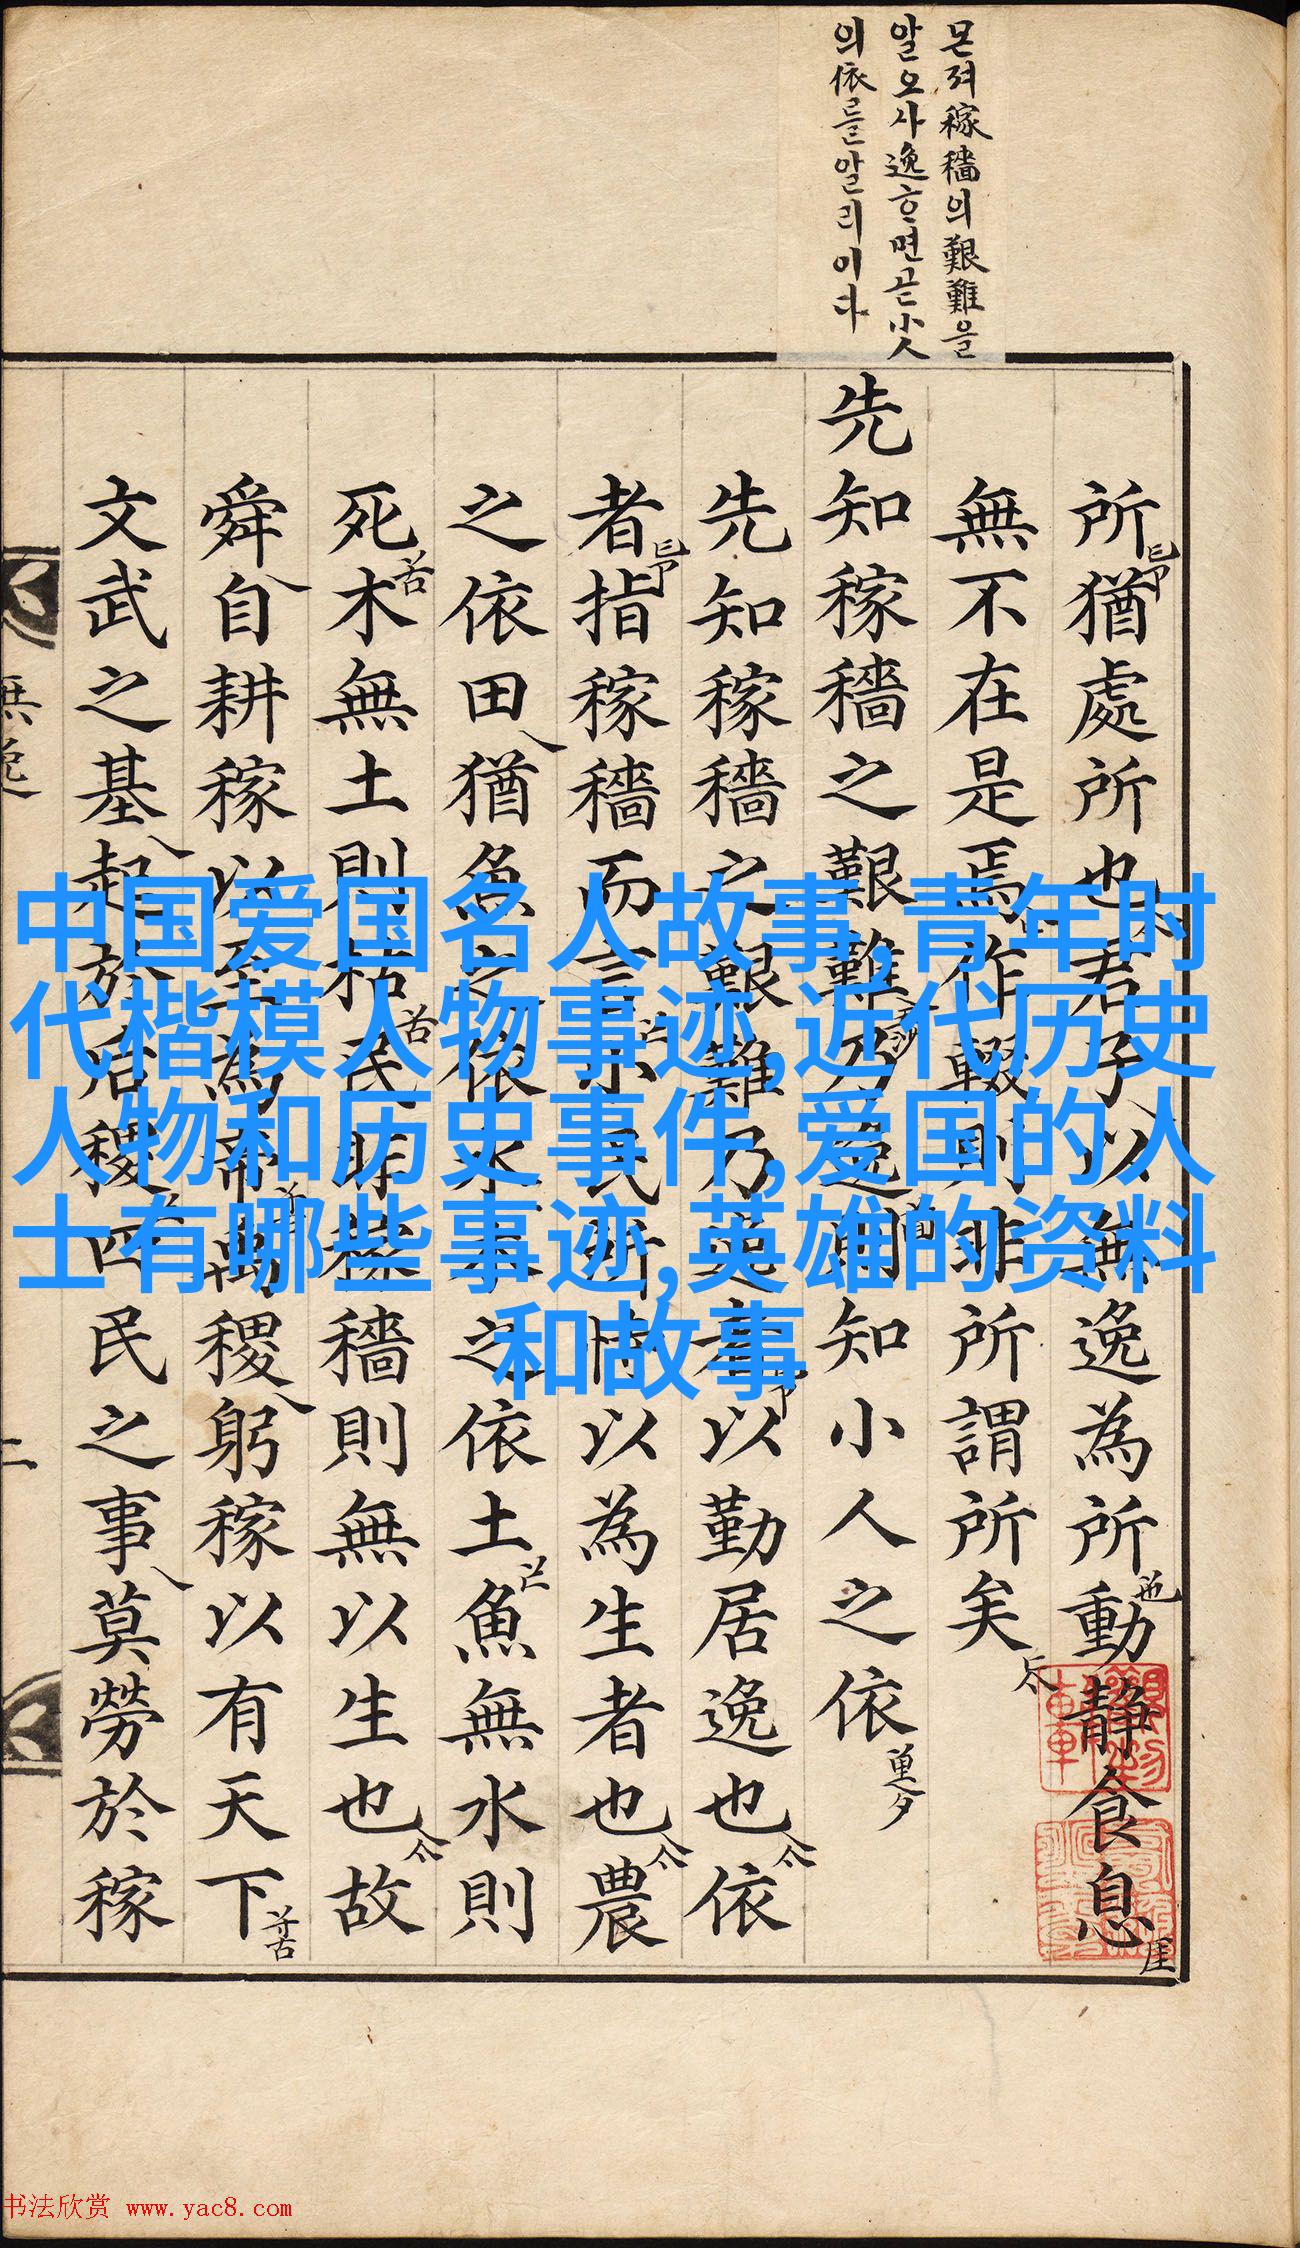 몬져稼穡의艱難을
알오사逸ᄒᆞ면곧小人
의依를알리이다
所猶處所也君子以無逸為所動靜食息
無不在是焉作輟則非所謂所矣
先知稼穡之艱難乃逸則知小人之依
先知稼穡之艱難乃逸者以勤居逸也依
者指稼穡而言小民所恃以為生者也農
之依田猶魚之依水木之依土魚無水則
死木無土則枯民非稼穡則無以生也故
舜自耕稼以至為帝禹稷躬稼以有天下
文武之基起於后稷四民之事莫勞於稼
無逸
二
中国爱国名人故事,青年时
代楷模人物事迹,近代历史
人物和历史事件,爱国的人
士有哪些事迹,英雄的资料
和故事
书法欣赏 www.yac8.com